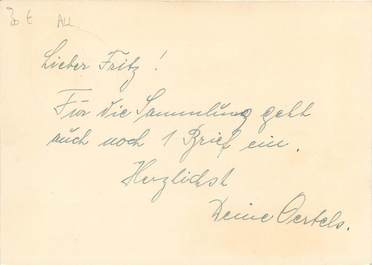 20 € All
Lieber Fritz!
Für die Sammlung geht
auch noch 1 Brief ein.
Herzlichst
Deine Oertels.